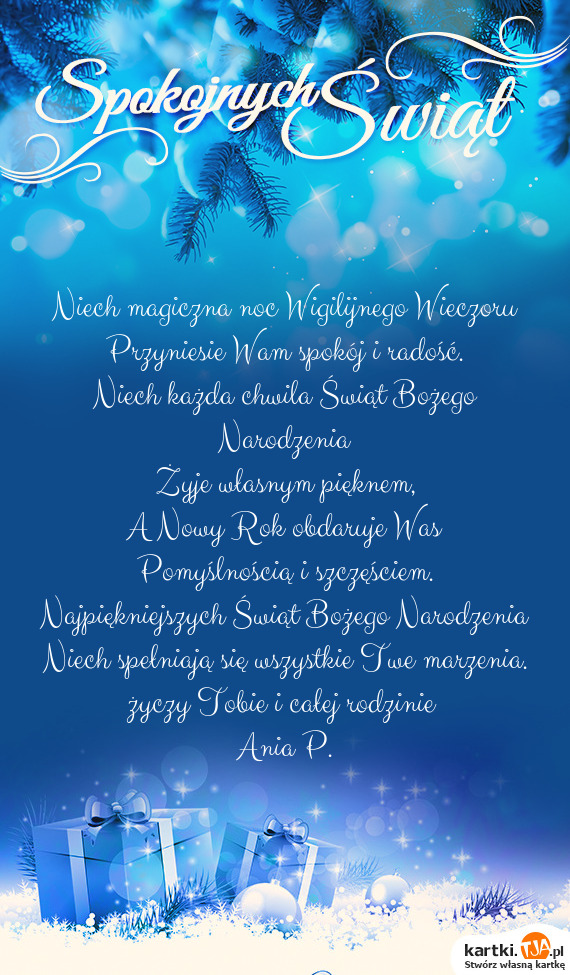 Spokojnych Świąt
Niech magiczna noc Wigilijnego Wieczoru
Przyniesie Wam spokój i radość.
Niech każda chwila Świąt Bożego
Narodzenia
Żyje własnym pięknem,
A Nowy Rok obdaruje Was
Pomyślnością i szczęściem.
Najpiękniejszych Świąt Bożego Narodzenia
Niech spełniają się wszystkie Twe marzenia.
życzy Tobie i całej rodzinie
Ania P.
kartki.TJA.pl
Stwórz własną kartkę